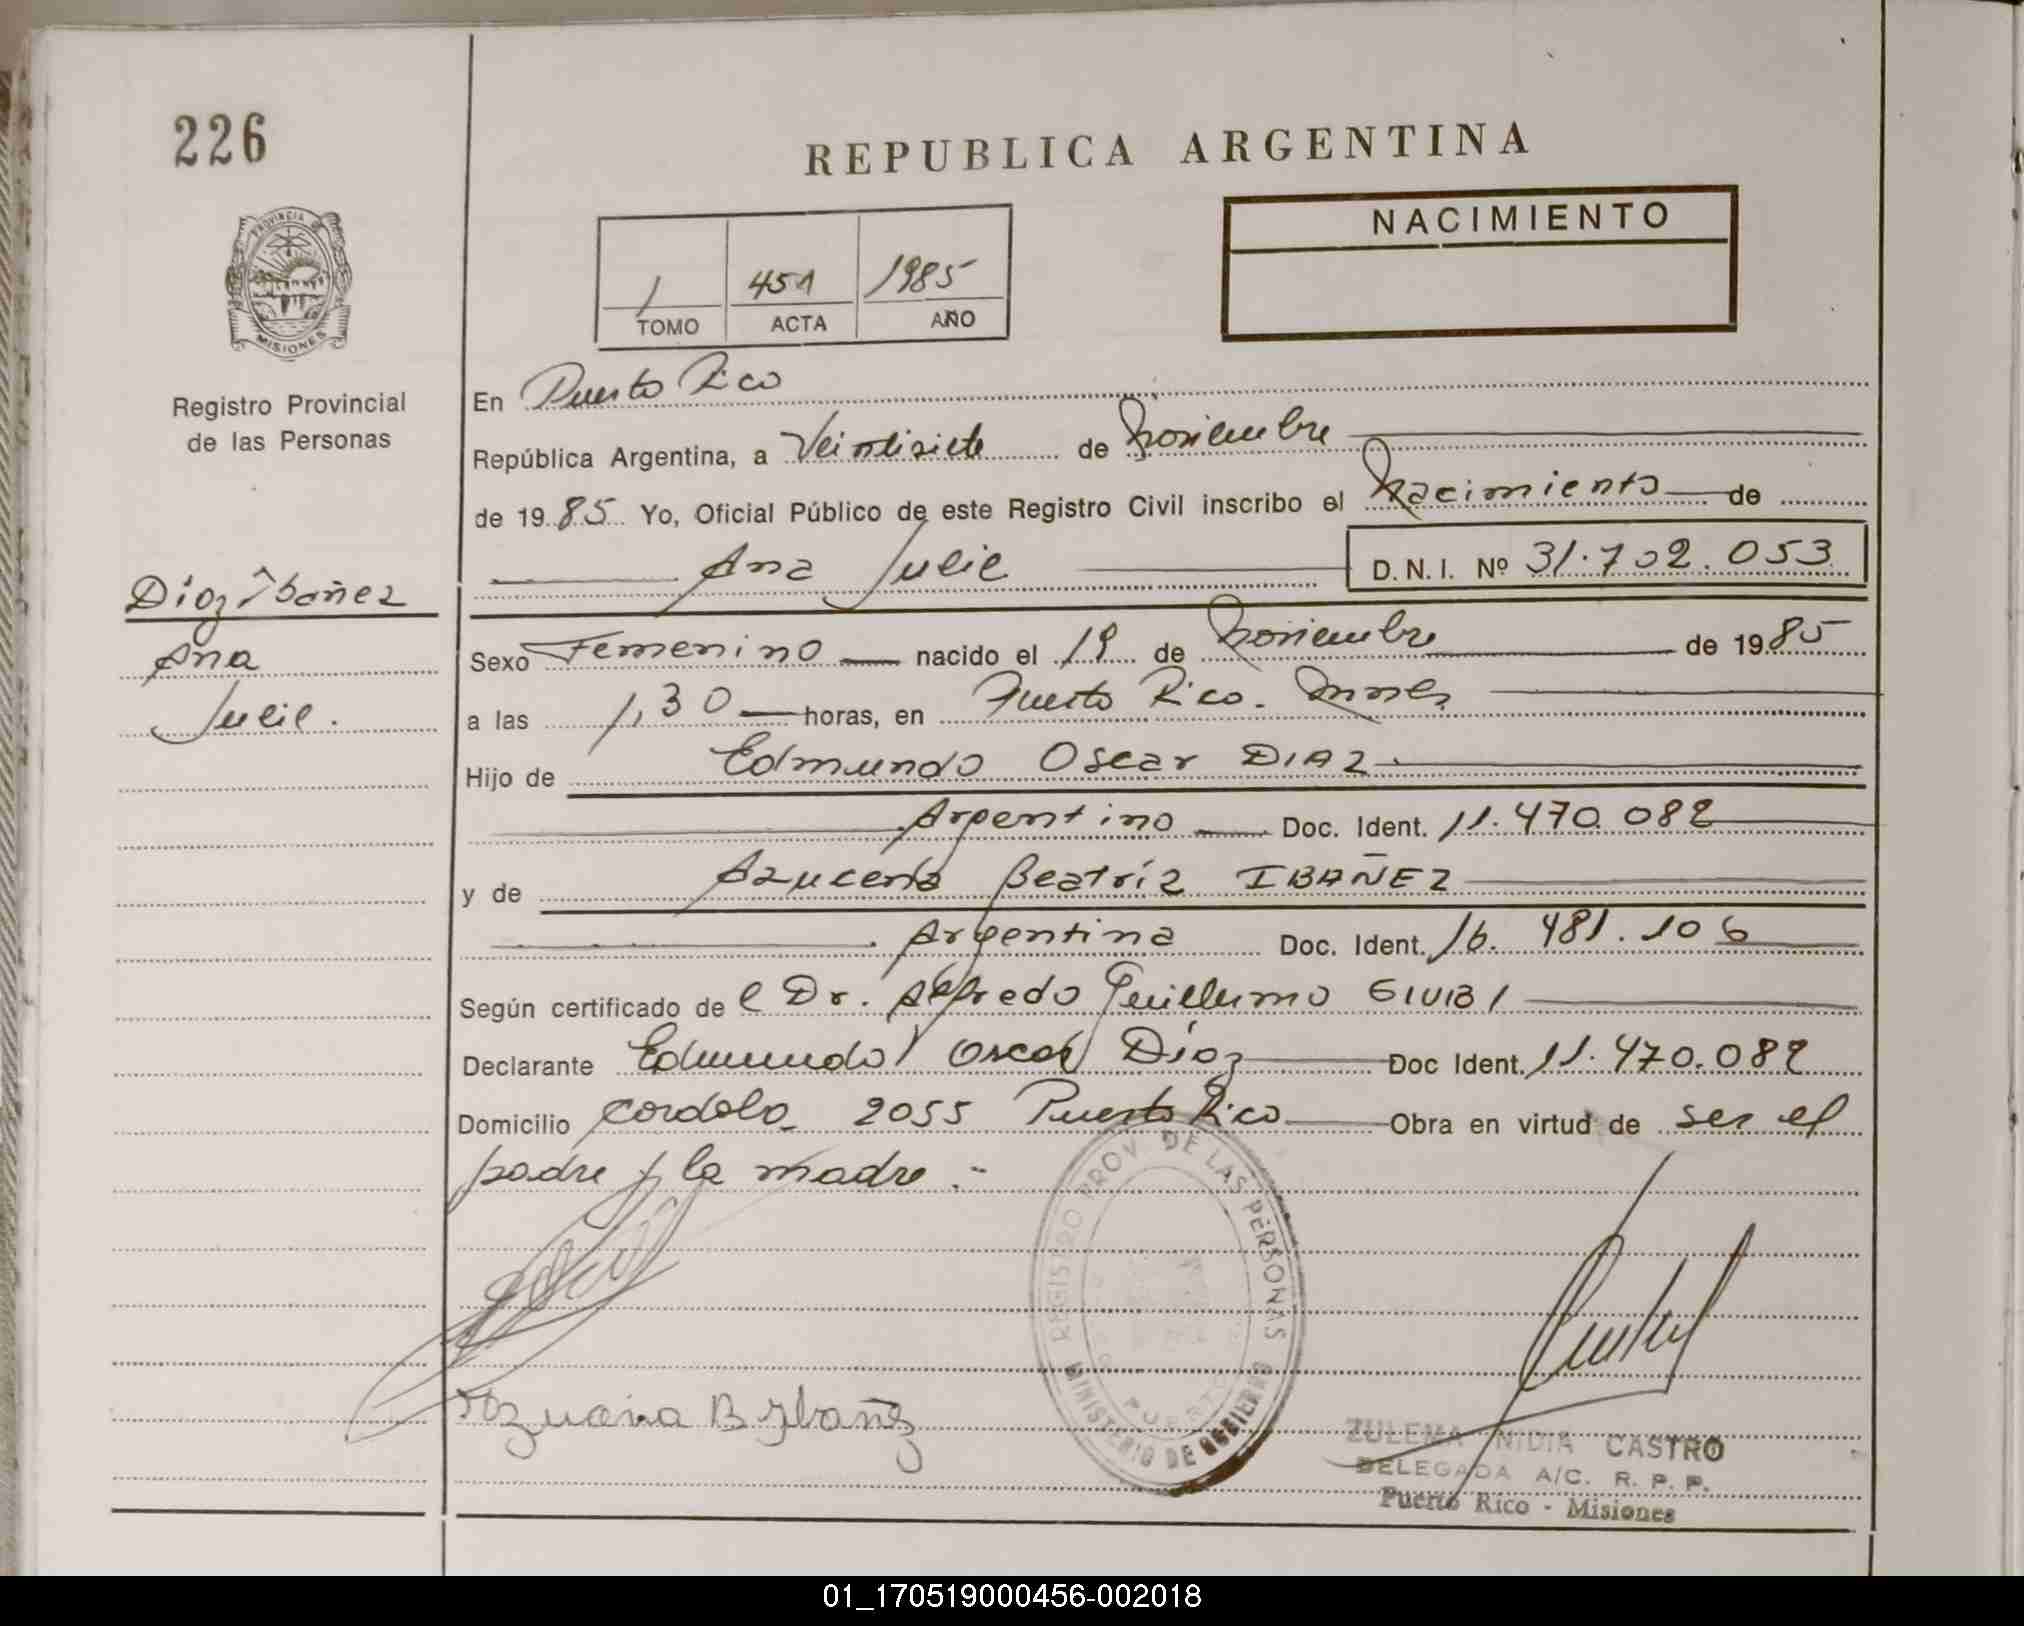 226
REPUBLICA ARGENTINA
PROVINCIA DE
MISIONES
1 451 1985
TOMO ACTA AÑO
NACIMIENTO
Registro Provincial
de las Personas
En Puerto Rico
República Argentina, a Veintisiete de Noviembre
de 1985 Yo, Oficial Público de este Registro Civil inscribo el Nacimiento de
Ana Julie D.N.I. Nº 31.702.053
Díaz Ibañez
Ana
Julie.
Sexo Femenino nacido el 19 de Noviembre de 1985
a las 1,30 horas, en Puerto Rico. Mnes
Hijo de Edmundo Oscar DIAZ
Argentino Doc. Ident. 11.470.082
y de Azucena Beatríz IBAÑEZ
Argentina Doc. Ident. 16.481.106
Según certificado de l Dr. Alfredo Guillermo GIUBI
Declarante Edmundo Oscar Díaz Doc Ident. 11.470.082
Domicilio Cordoba 2055 Puerto Rico Obra en virtud de ser el
padre y la madre.-
REGISTRO PROV. DE LAS PERSONAS
MINISTERIO DE GOBIERNO
PUERTO
Azucena B Ibañez
ZULEMA NIDIA CASTRO
DELEGADA A/C. R. P. P.
Puerto Rico - Misiones
01_170519000456-002018